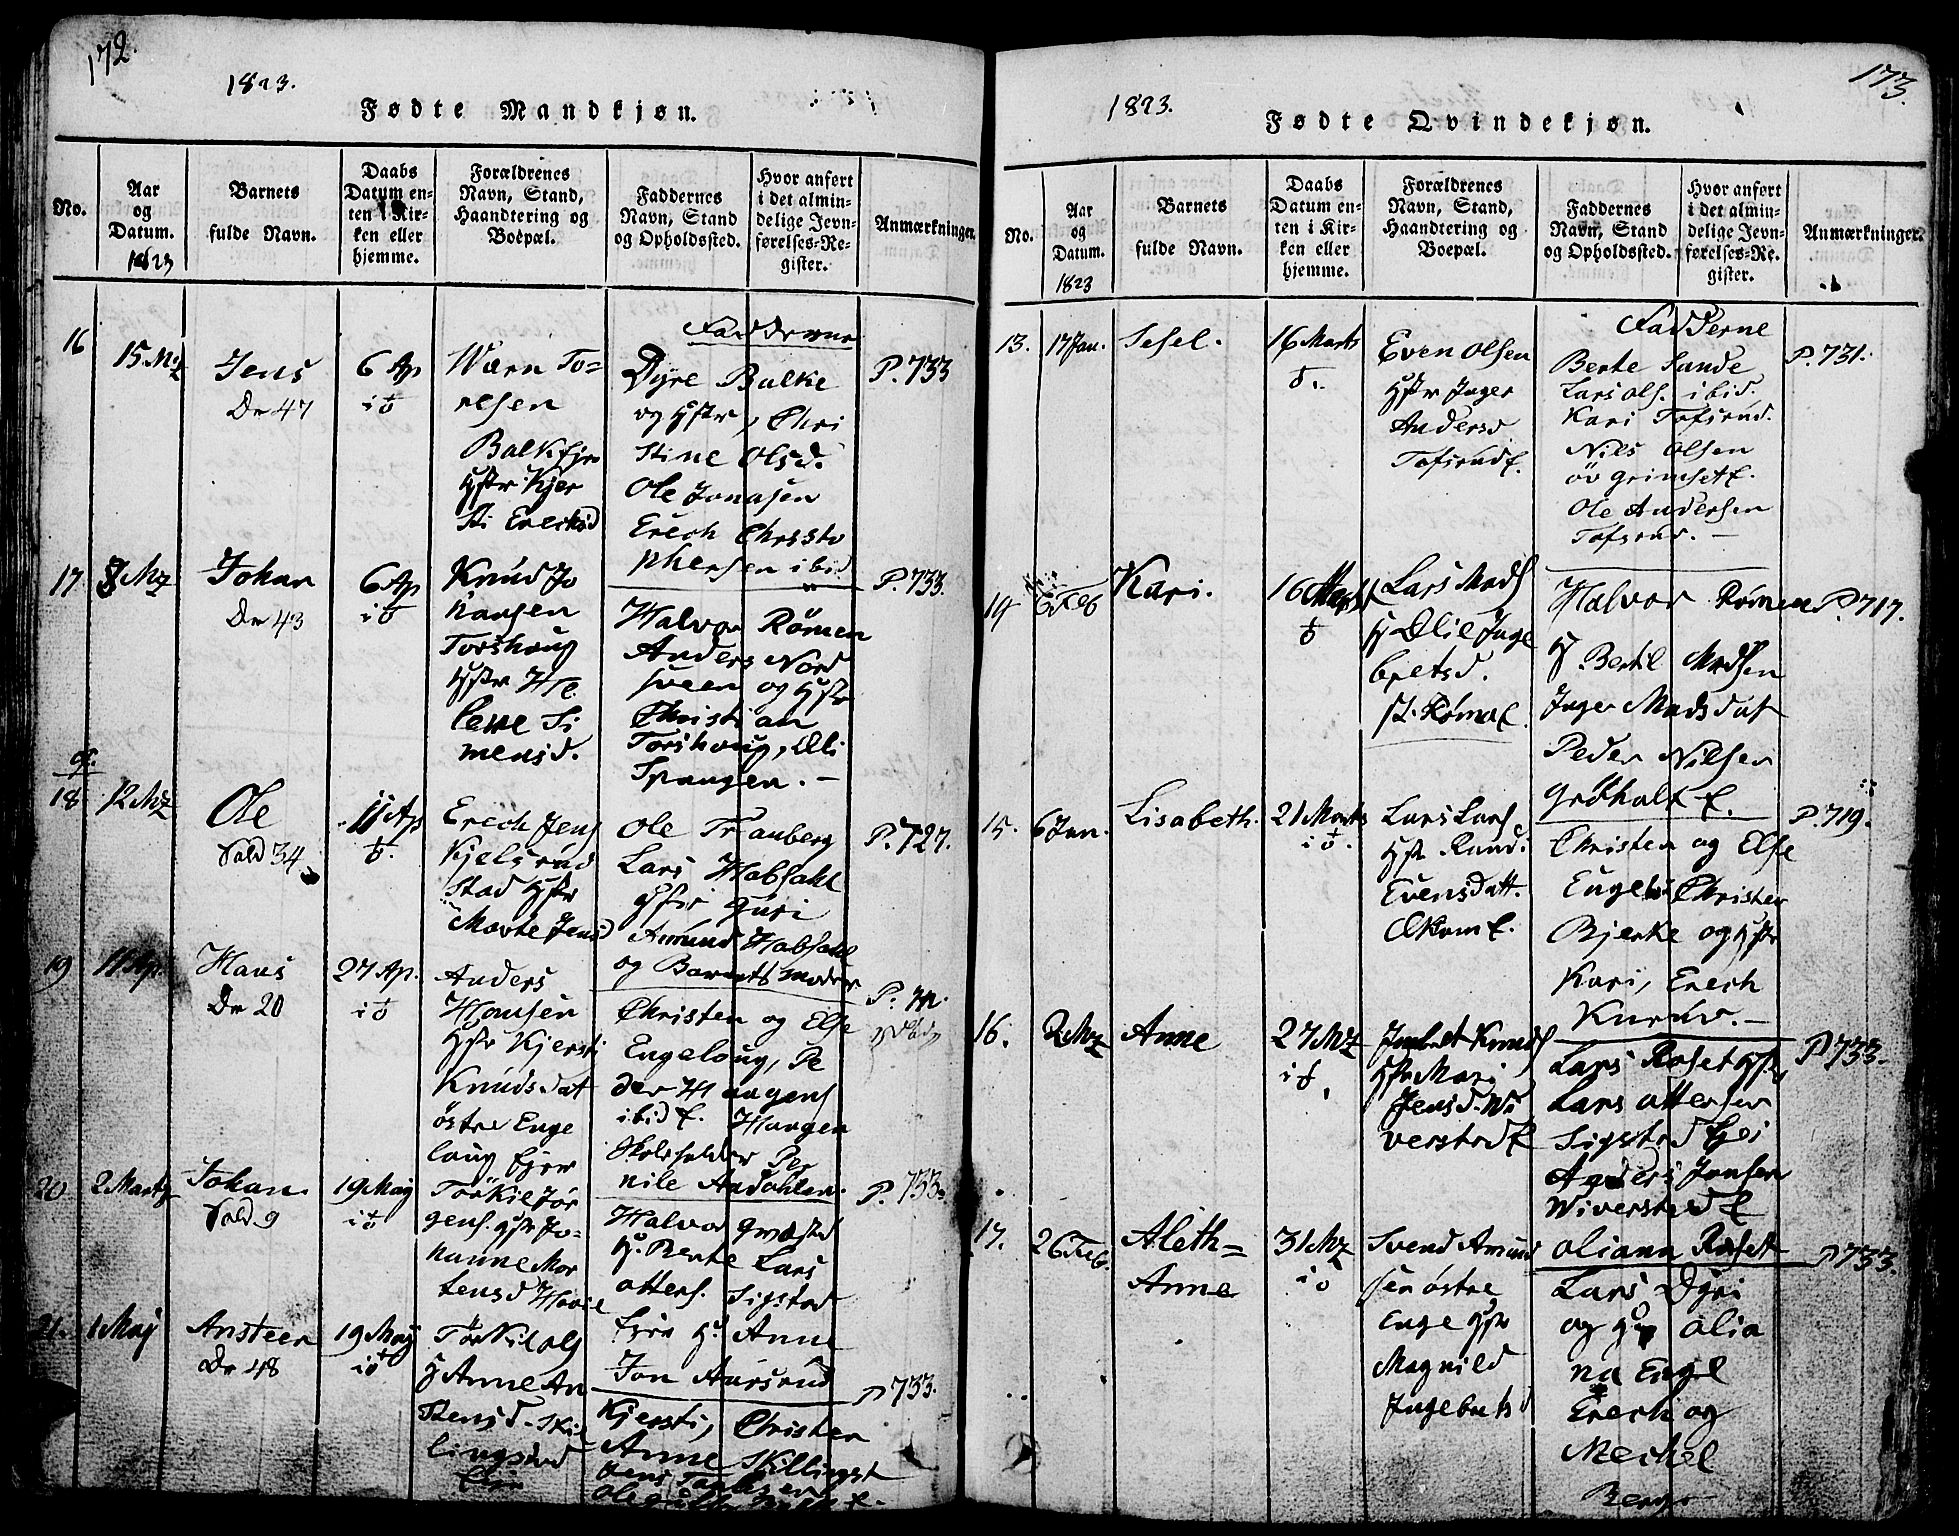 172.
1823.
Fødte Mandkjøn.
No.
Aar
og
Datum.
1823
Barnets
fulde Navn.
Daabs
Datum en-
ten i Kir-
ken eller
hjemme.
Forældrenes
Navn, Stand,
Haandtering og
Boepæl.
Faddernes
Navn, Stand
og Opholdssted.
Hvor anført
i det almin-
delige Jevn-
førelses-Re-
gister.
Anmærkninger.
16
15 Mz
Jens
Dr 47
6 Ap
Warn To=
resen
Balke
Kjer
sti Erichsd
Fadderne
Dyre Balke
og Hstr, Chri
stine Olsd.
Ole Jonasen
Erech Christo
phersen ibid
P. 733
17
8 Mz
Johan
Dr 43
6 Ap
Knud Jo
hansen
Torshoug
Hstr He
lene Si
mensd.
Halvor Römen
Anders Nord
sveen og Hstr
Christian
Torshoug, Oli
Spangen. —
P. 733.
18
12 Mz
Ole
34
11 Ap
Erech Jens
Kjelsrud
Stad Hstr
Marte Jensd
Ole Trauberg
Lars Habsahl
Guri
Amund Habsahl
og Barnets Moder
P. 727.
19
11 Ap.
Hans
Dr 20
27 Ap.
Anders
Hansen
Hstr Kjersti
Knudsdat
östre Enge
loug Ejer
Christen og Else
Engeloug, Pe
der Haugens
ibid E. Haugen
Skoleholder Per
nile
20
2 Martz
Johan
9
19 Maj
Törkil Jör
gens. Hstr Jo-
hanne Mor
tensd Hovie
Halvor Græsted
H. Berte Lars
Otters. Sigstad
Ejer H. Anne
Jon Aarsrud
P. 733.
21.
1 Maj
Ansteen
Dr 48
19 Maj
Törkil Ols
H Anne An
stensd. Skil
lingstad
Ejer
Kjersti, Christen
Anne Skillingst
P 733.
173.
1823.
Fødte Qvindekjøn.
No.
Aar
og
Datum.
1823
Barnets
fulde Navn.
Daabs
Datum en-
ten i Kir-
ken eller
hjemme.
Forældrenes
Navn, Stand,
Haandtering og
Boepæl.
Faddernes
Navn, Stand
og Opholdssted.
Hvor anført
i det almin-
delige Jevn-
førelses-Re-
gister.
Anmærkninger.
13.
17 Jan.
Sesel.
16 Marts
Even Olsen
Hstr Inger
Andersd
Tofsrud E.
Fadderne
Berte Sande
Lars Ols. ibid.
Kari Tofsrud.
Nils Olsen
öv Grimset E.
Ole Andersen
Tofsrud. —
P. 731.
14
6 Feb
Kari.
16 Marts
Lars Mads
H Olie Inge
bretsd.
Halvor Römen
H. Bertil Madsen
Inger Madsdat
Peder Nilsen
Gröholt E.
P. 717.
15.
6 Jan.
Lisabeth.
21 Marts
Lars Lars
Hstr Rand.
Evensdatt.
Christen og Else
Engel Christen
Bjerke og Hstr
Kari, Erech
Kurud. —
P. 719.
16.
2 Mz
Anne
27 Mz
Knuds
Hstr Mari
Jensd. Wi
verstad E
Lars Roset Hstr,
Lars Ottersen
Sigstad Ejer
Anders Jonsen
Wiverstad E
Oliann Roset
P 733.
17.
26 Feb.
Aleth=
Anne
31 Mz
Svend Amund
sen östre
Enge Hstr
Magnild
Ingebretsd
Lars Dyri
og H Olia
na Engel
Erech og
Mechel
Berg
P 733.